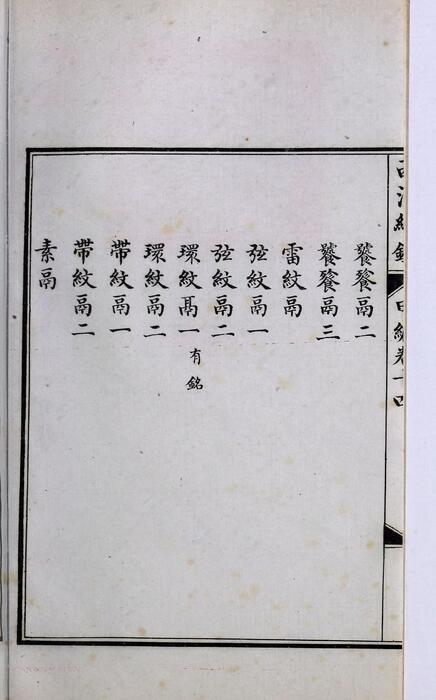 西清續鑑 甲編卷十四
饕餮鬲二
饕餮鬲三
雷紋鬲
弦紋鬲一
弦紋鬲二
環紋鬲一有銘
環紋鬲二
帶紋鬲一
帶紋鬲二
素鬲